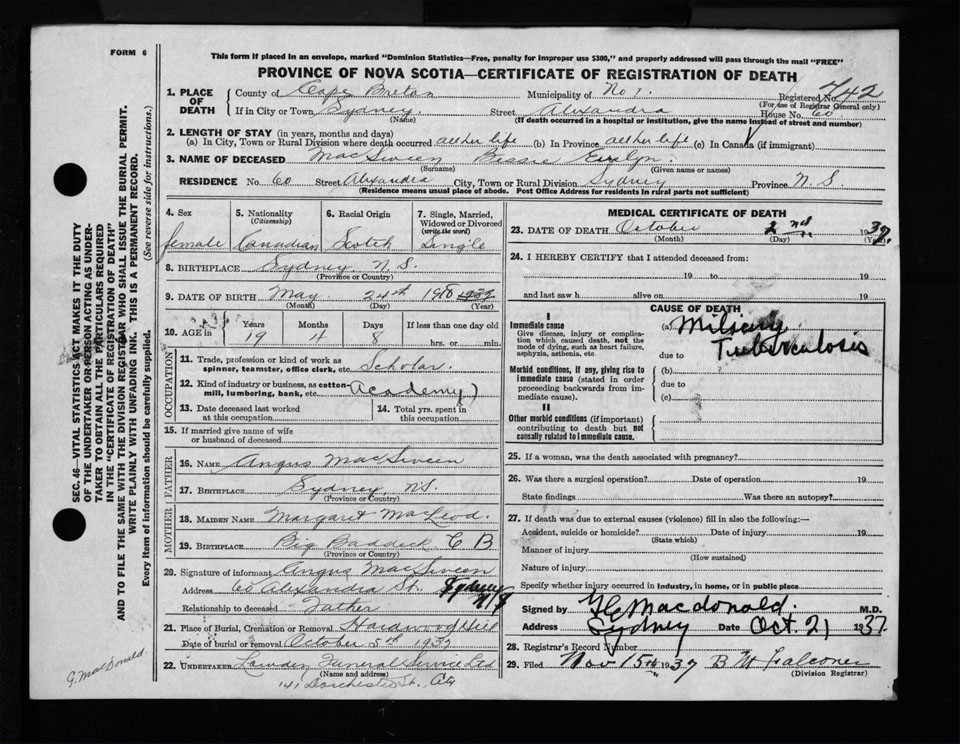 FORM 6
This form if placed in an envelope, marked "Dominion Statistics—Free, penalty for improper use $300," and properly addressed will pass through the mail "FREE"
PROVINCE OF NOVA SCOTIA—CERTIFICATE OF REGISTRATION OF DEATH
1. PLACE OF DEATH County of Cape Breton Municipality of No 1. Registered No. 442
(For use of Registrar General only)
If in City or Town Sydney Street Alexandra House No. 60
(Name) (If death occurred in a hospital or institution, give the name instead of street and number)
2. LENGTH OF STAY (in years, months and days)
(a) In City, Town or Rural Division where death occurred all her life (b) In Province all her life (c) In Canada (if immigrant)
3. NAME OF DECEASED MacSween Bessie Evelyn.
(Surname) (Given name or names)
RESIDENCE No 60 Street Alexandra City, Town or Rural Division Sydney Province N. S.
(Residence means usual place of abode. Post Office Address for residents in rural parts not sufficient)
4. Sex 5. Nationality (Citizenship) 6. Racial Origin 7. Single, Married, Widowed or Divorced (write the word)
female Canadian Scotch Single
8. BIRTHPLACE Sydney N.S.
(Province or Country)
9. DATE OF BIRTH May 24th 1918
(Month) (Day) (Year)
10. AGE in Years Months Days If less than one day old
19 4 8 hrs. or min.
OCCUPATION
11. Trade, profession or kind of work as spinner, teamster, office clerk, etc. Scholar.
12. Kind of industry or business, as cotton-mill, lumbering, bank, etc. (Academy)
13. Date deceased last worked at this occupation 14. Total yrs. spent in this occupation
15. If married give name of wife or husband of deceased
FATHER
16. NAME Angus MacSween
17. BIRTHPLACE Sydney, N.S.
(Province or Country)
MOTHER
18. MAIDEN NAME Margaret MacLeod.
19. BIRTHPLACE Big Baddeck C B
(Province or Country)
20. Signature of informant Angus MacSween
Address 60 Alexandra St. Sydney N/S
Relationship to deceased Father
21. Place of Burial, Cremation or Removal Hardwood Hill
Date of burial or removal October 5th 1937
22. UNDERTAKER Lawden Funeral Service Ltd
(Name and address)
141 Dorchester St., City
MEDICAL CERTIFICATE OF DEATH
23. DATE OF DEATH October 2nd 1937.
(Month) (Day) (Year)
24. I HEREBY CERTIFY that I attended deceased from:
19 to 19
and last saw h alive on 19
CAUSE OF DEATH
I
Immediate cause
Give disease, injury or complication which caused death, not the mode of dying, such as heart failure, asphyxia, asthenia, etc.
(a) Miliary
Tuberculosis
due to
Morbid conditions, if any, giving rise to immediate cause (stated in order proceeding backwards from immediate cause).
(b)
due to
(c)
II
Other morbid conditions (if important) contributing to death but not causally related to immediate cause.
25. If a woman, was the death associated with pregnancy?
26. Was there a surgical operation? Date of operation 19
State findings Was there an autopsy?
27. If death was due to external causes (violence) fill in also the following:—
Accident, suicide or homicide? Date of injury 19
(State which)
Manner of injury
(How sustained)
Nature of injury
Specify whether injury occurred in industry, in home, or in public place
Signed by Macdonald. M.D.
Address Sydney Date Oct. 21 1937.
28. Registrar's Record Number
29. Filed Nov 15th 1937 B M Falconer
(Division Registrar)
SEC. 46—VITAL STATISTICS ACT MAKES IT THE DUTY
OF THE UNDERTAKER OR PERSON ACTING AS UNDER-
TAKER TO OBTAIN ALL THE PARTICULARS REQUIRED
IN THE "CERTIFICATE OF REGISTRATION OF DEATH"
AND TO FILE THE SAME WITH THE DIVISION REGISTRAR WHO SHALL ISSUE THE BURIAL PERMIT.
WRITE PLAINLY WITH UNFADING INK. THIS IS A PERMANENT RECORD.
Every item of information should be carefully supplied. (See reverse side for instructions.)
G. MacDonald.